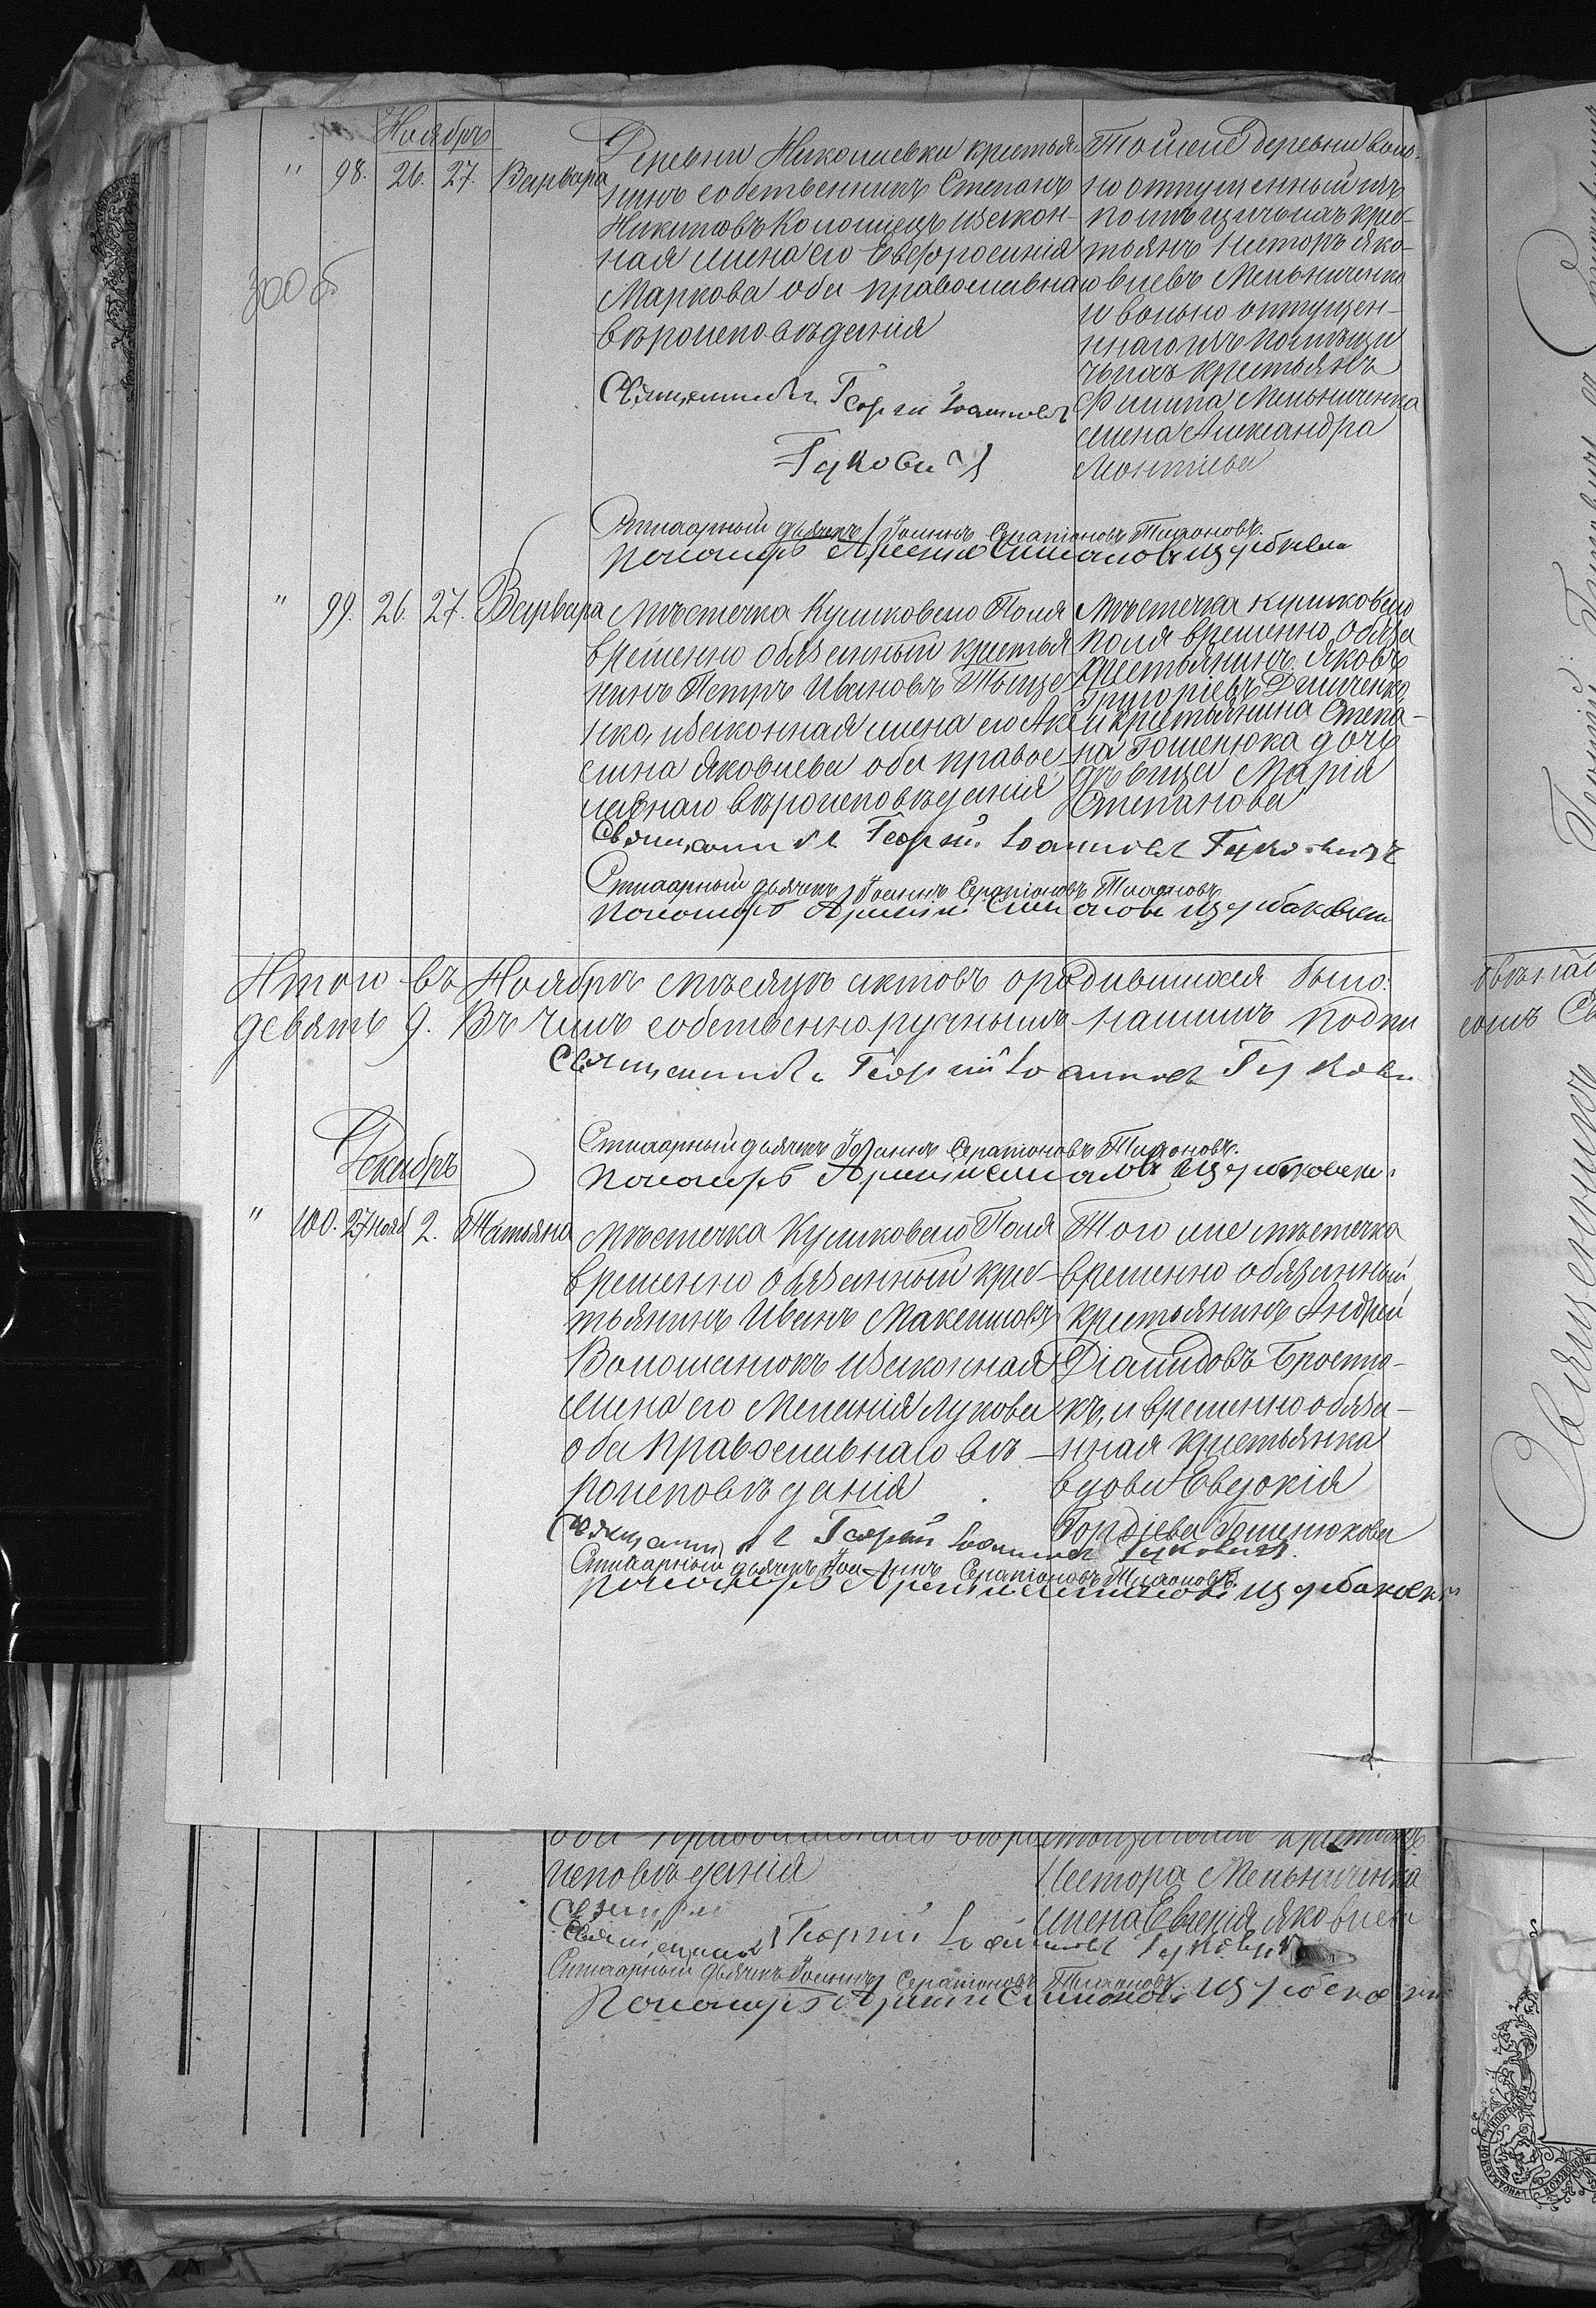 Ноябрь
" 98. 26. 27. Варвара
Деревни Николаевки крестья-
нинъ собственникъ Степанъ
Никитовъ Коломіецъ и закон-
ная жена его Евфросинія
Маркова оба православнаго
вѣроисповѣданія
Той же деревни воль-
но отпущенный изъ
помѣщичьихъ кре-
стьянъ Несторъ Яко-
влевъ Мельниченко
и вольно отпущен-
ннаго изъ помѣщи
чьихъ крестьянъ
Филиппа Мельниченка
жена Александра
Леонтіева
300 об
Священникъ Георгій Іоанновъ
Гукович
Стихарный дьячекъ Іоаннъ Серапіоновъ Тихоновъ.
Пономарь Арсеній Симоновъ Щербаковск
" 99. 26. 27. Варвара
Мѣстечка Куликового Поля
временно обязанный крестья
нинъ Петръ Ивановъ Тыще
нко, и законная жена его Аке
лина Яковлева оба правос-
лавнаго вѣроисповѣданія
Мѣстечка Куликового
поля временно обяза
крестьянинъ Яковъ
Григоріевъ
и крестьянина Степа-
на Гошенюка дочь
дѣвица Марія
Степанова
Священникъ Георгій Іоанновъ Гуковичъ
Стихарный дьячекъ Іоаннъ Серапіоновъ Тихоновъ
Пономарь Арсеній Симоновъ Щербаковск
Итого въ Ноябрѣ мѣсяцѣ актовъ о родившихся было
девять 9. Въ чемъ собственноручнымъ нашимъ подпи
Священникъ Георгій Іоанновъ Гукови
Стихарный дьячекъ Іоаннъ Серапіоновъ Тихоновъ.
Пономарь Арсеній Симоновъ Щербаковск
Декабрь
" 100. 27 нояб 2. Татьяна
Мѣстечка Куликового Поля
временно обязанный кре-
стьянинъ Иванъ Максимовъ
Волошенюкъ и законная
жена его Меланія Лукова
оба православнаго вѣ-
роисповѣданія
Того же мѣстечка
временно обязанный
крестьянинъ Андрей
и временно обяза-
нная крестьянка
вдова Евдокія
Гордіева Гошенюкова
Священникъ Георгій Іоанновъ Гуковичъ.
Стихарный дьячекъ Іоаннъ Серапіоновъ Тихоновъ.
Пономарь Арсеній Симоновъ Щербаковск
исповѣданія
Нестора Мельниченка
жена Евгенія Яковлева
Священникъ Георгій Іоанновъ Гукович
Стихарный дьячекъ Іоаннъ Серапіоновъ Тихоновъ
Пономарь Арсеній Симоновъ